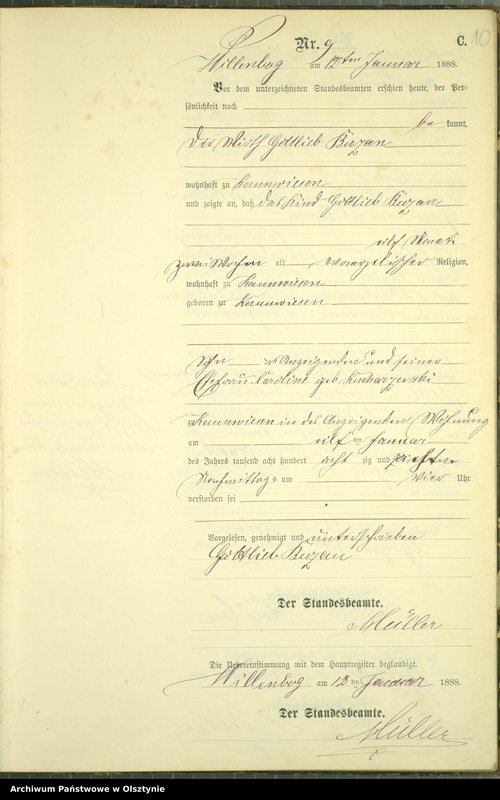 Nr. 9
C.
10
Willenberg am 12ten Januar 1888.
Vor dem unterzeichneten Standesbeamten erschien heute, der Per-
sönlichkeit nach
be kannt,
der Wirth Gottlieb
wohnhaft zu
und zeigte an, daß das Kind Gottlieb
elf Monate
zwei Wochen alt evangelischer Religion,
wohnhaft zu
geboren zu
Sohn des Anzeigenden und seiner
Ehefrau Caroline geb.
zu in des Anzeigenden Wohnung
am elf ten Januar
des Jahres tausend acht hundert acht zig und
Nachmittags um vier Uhr
verstorben sei
Vorgelesen, genehmigt und unterschrieben
Gottlieb
Der Standesbeamte.
Müller
Die Uebereinstimmung mit dem Hauptregister beglaubigt.
Willenberg am 12 ten Januar 1888.
Der Standesbeamte.
Müller
Archiwum Państwowe w Olsztynie